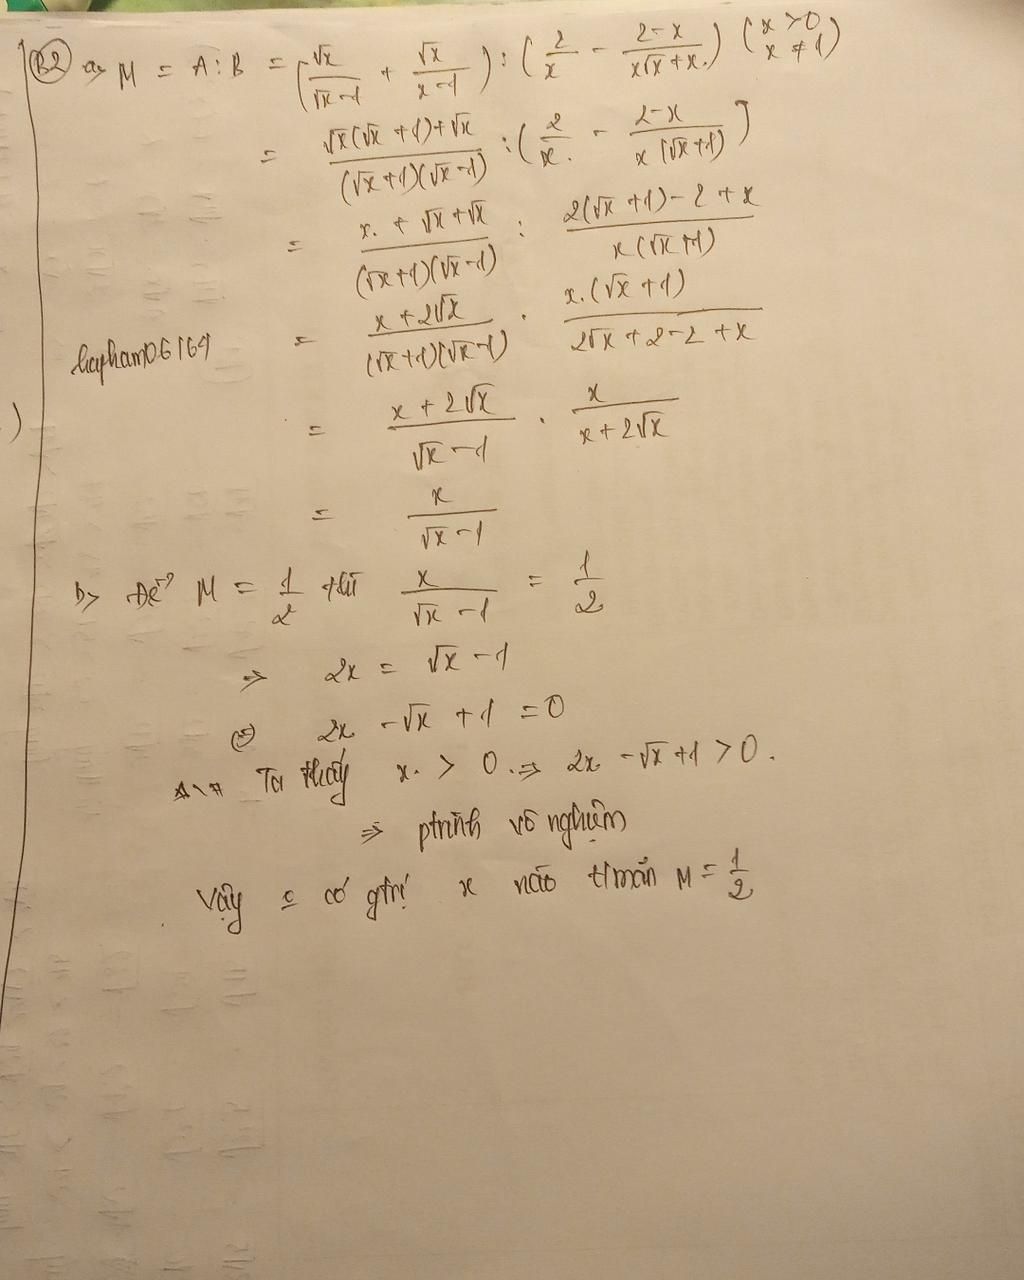 B2 a, M = A : B = (√x/(√x-1) + √x/(x-1)) : (2/x - (2-x)/(x√x+x)) (x>0 x≠1)
= (√x(√x+1)+√x)/((√x+1)(√x-1)) : (2/x - (2-x)/(x(√x+1))]
= (x + √x + √x)/((√x+1)(√x-1)) : (2(√x+1)-2+x)/(x(√x+1))
= (x+2√x)/((√x+1)(√x-1)) . (x.(√x+1))/(2√x+2-2+x)
= (x+2√x)/(√x-1) . x/(x+2√x)
= x/(√x-1)
b, Để M = 1/2 thì x/(√x-1) = 1/2
⇒ 2x = √x - 1
⇔ 2x - √x + 1 = 0
Ta thấy x > 0 ⇒ 2x - √x + 1 > 0.
⇒ ptrình vô nghiệm
Vậy có gtrị x nào t/mãn M = 1/2